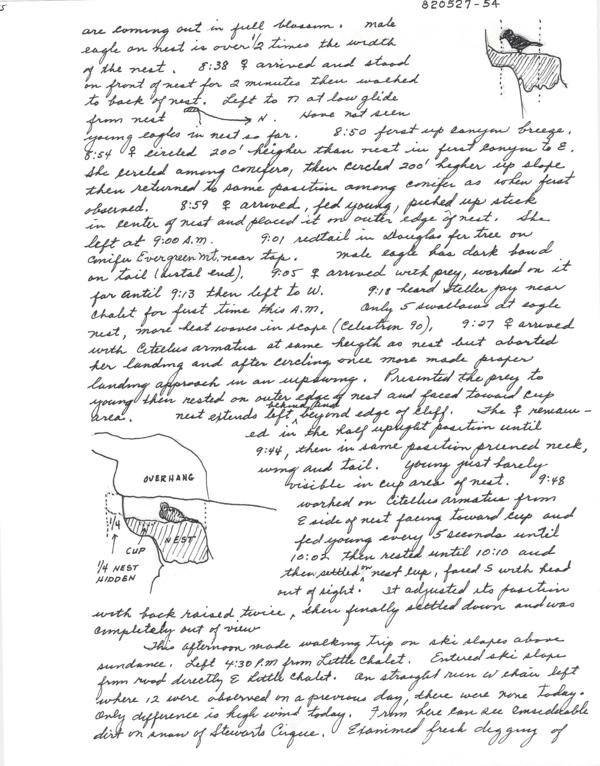 820527-54
are coming out in full blossom. male
eagle on nest is over 1/2 times the width
of the nest. 8:38 ♀ arrived and stood
on front of nest for 2 minutes then walked
to back of nest. Left to N at low glide
from nest → N. Have not seen
young eagles in nest so far. 8:50 first up canyon breeze.
8:54 ♀ circled 200' heigher than nest in first canyon to E.
She circled among conifers, then circled 200' higher up slope
then returned to same position among conifer as when first
observed. 8:59 ♀ arrived, fed young, picked up stick
in center of nest and placed it on outer edge of nest. She
left at 9:00 A.M. 9:01 redtail in Douglas fir tree on
Conifer Evergreen Mt, near top. male eagle has dark band
on tail (distal end). 9:05 ♀ arrived with prey, worked on it
for until 9:13 then left to W. 9:18 heard Steller jay near
Chalet for first time this A.M. Only 5 swallows at eagle
nest, more heat waves in scope (Celestron 90), 9:27 ♀ arrived
with Citellus armatus at same heigth as nest but aborted
her landing and after circling once more made proper
landing approach in an upswing. Presented the prey to
young then rested on outer edge of nest and faced toward cup
area. nest extends left, behind and beyond edge of cliff. The ♀ remain-
ed in the half upright position until
9:44, then in same position preened neck,
wing and tail. young just barely
visible in cup area of nest. 9:48
worked on Citellus armatus from
E side of nest facing toward cup and
fed young every 5 seconds until
10:02 then rested until 10:10 and
then settled on nest cup, faced S with head
out of sight. It adjusted its position
with back raised twice, then finally settled down and was
completely out of view
OVERHANG
1/4
CUP
NEST
1/4 NEST
HIDDEN
This afternoon made walking trip on ski slopes above
sundance. Left 4:30 P.M from Little Chalet. Entered ski slope
from road directly E Little Chalet. On straight run W chair left
where 12 were observed on a previous day, there were none today.
Only difference is high wind today. From here can see considerable
dirt on snow of Stewarts Cirque. Examined fresh digging of